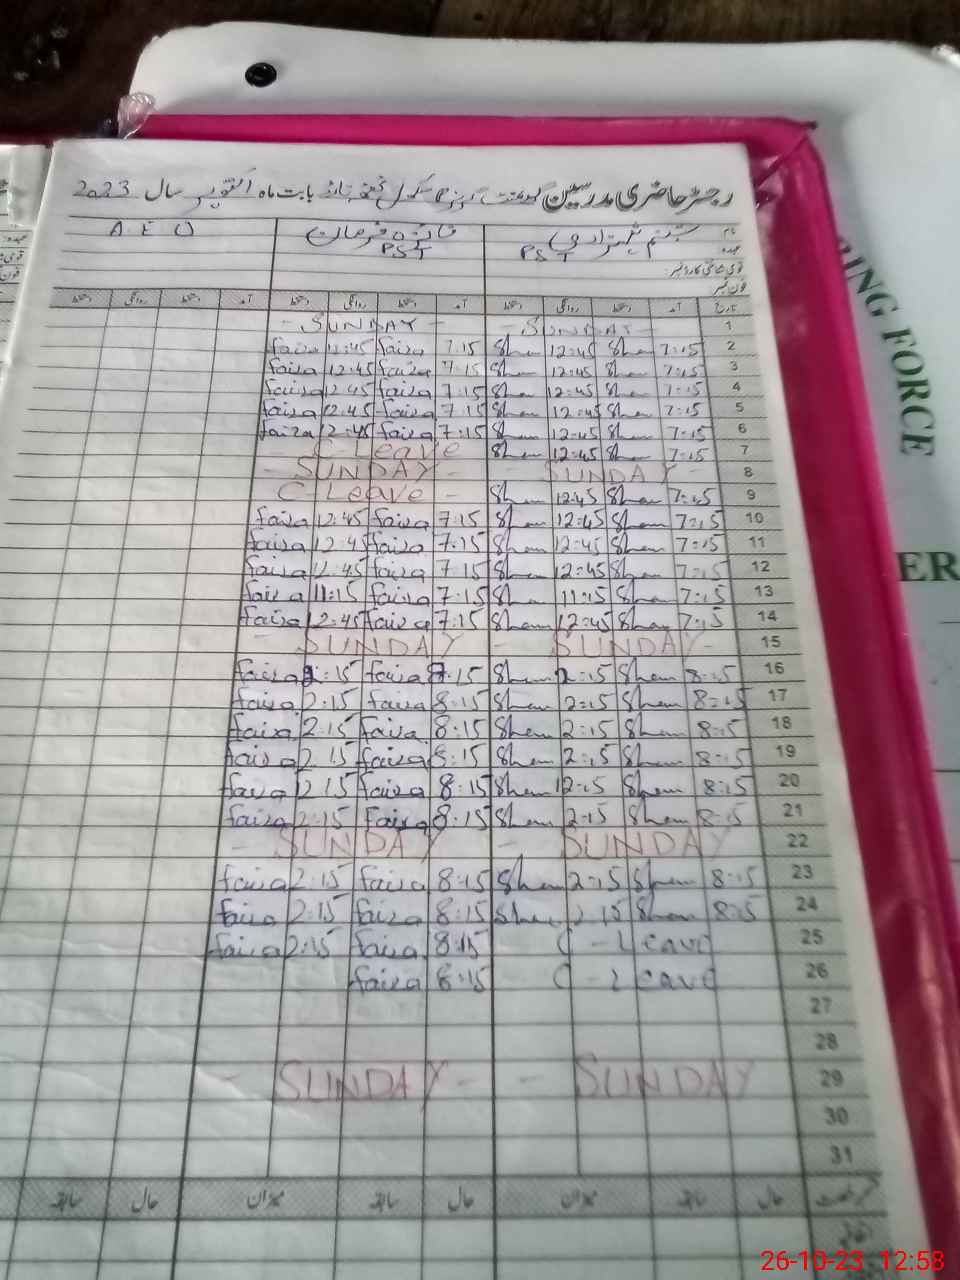 رجسٹر حاضری مدرسین گورنمنٹ گرلز سکول بابت ماہ اکتوبر سال 2023
نام شبنم شہزادی فائزہ فرمان A E O
عہدہ PST PST
قومی شناختی کارڈ نمبر:
فون نمبر
تاریخ آمد دستخط روانگی دستخط آمد دستخط روانگی دستخط آمد دستخط روانگی دستخط
1 - SUNDAY - - SUNDAY -
2 7:15 Shen 12:45 Shen 7:15 faiza 12:45 faiza
3 7:15 Shen 12:45 Shen 7:15 faiza 12:45 faiza
4 7:15 Shen 12:45 Shen 7:15 faiza 12:45 faiza
5 7:15 Shen 12:45 Shen 7:15 faiza 12:45 faiza
6 7:15 Shen 12:45 Shen 7:15 faiza 12:45 faiza
7 7:15 Shen 12:45 Shen - C-Leave
8 - SUNDAY - - SUNDAY -
9 7:15 Shen 12:45 Shen C-Leave -
10 7:15 Shen 12:45 Shen 7:15 faiza 12:45 faiza
11 7:15 Shen 12:45 Shen 7:15 faiza 12:45 faiza
12 7:15 Shen 12:45 Shen 7:15 faiza 12:45 faiza
13 7:15 Shen 11:15 Shen 7:15 faiza 11:15 faiza
14 7:15 Shen 12:45 Shen 7:15 faiza 12:45 faiza
15 - SUNDAY - - SUNDAY -
16 8:15 Shen 2:15 Shen 8:15 faiza 2:15 faiza
17 8:15 Shen 2:15 Shen 8:15 faiza 2:15 faiza
18 8:15 Shen 2:15 Shen 8:15 faiza 2:15 faiza
19 8:15 Shen 2:15 Shen 8:15 faiza 2:15 faiza
20 8:15 Shen 12:15 Shen 8:15 faiza 2:15 faiza
21 8:15 Shen 2:15 Shen 8:15 faiza 2:15 faiza
22 - SUNDAY - SUNDAY
23 8:15 Shen 2:15 Shen 8:15 faiza 2:15 faiza
24 8:15 Shen 2:15 Shen 8:15 faiza 2:15 faiza
25 C-Leave 8:15 faiza 2:15 faiza
26 C-Leave 8:15 faiza
27
28
29 - SUNDAY - SUNDAY -
30
31
حال سابقہ میزان حال سابقہ میزان حال سابقہ
اتفاقیہ
RING FORCE
ER
26-10-23 12:58